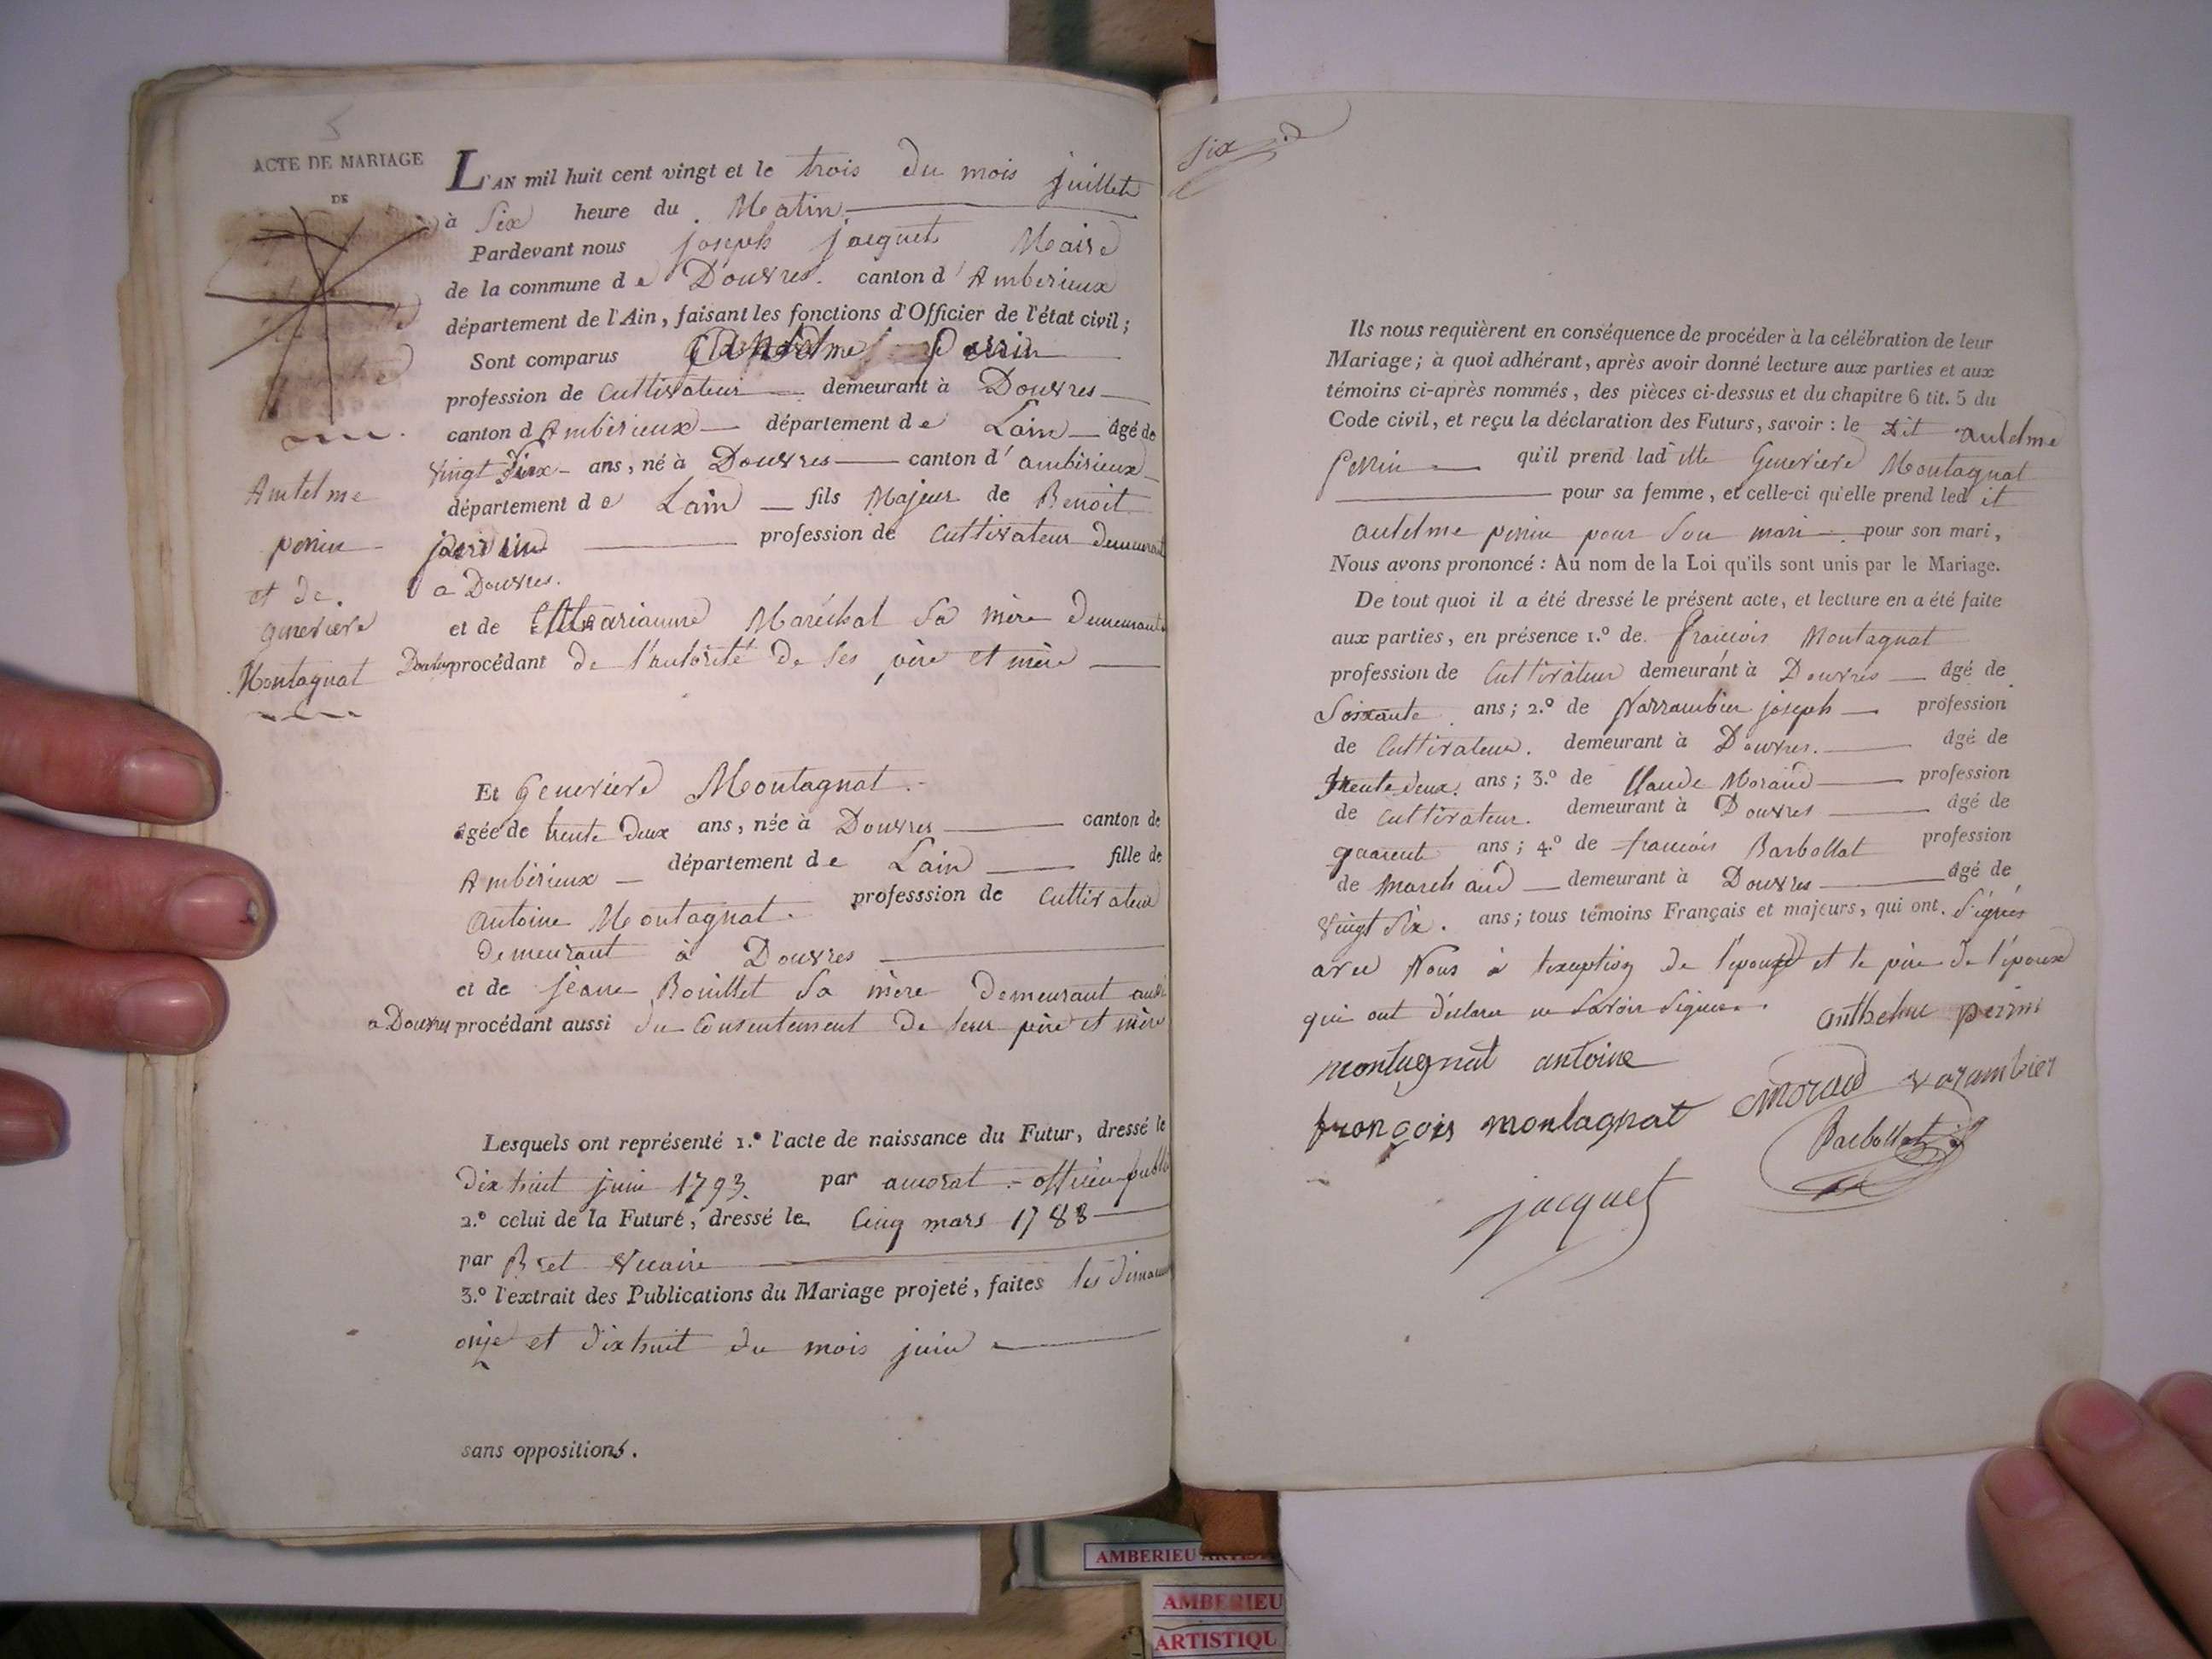 5
ACTE DE MARIAGE
DE
Antelme
perrin
et de
genevieve
Montagnat
L'AN mil huit cent vingt et le trois du mois juillet
à Six heure du Matin
Pardevant nous joseph jacquet Maire
de la commune de Douvres. canton d'Amberieux
département de l'Ain, faisant les fonctions d'Officier de l'état civil;
Sont comparus perrin
profession de Cultivateur demeurant à Douvres
canton d Amberieux département de Lain âgé de
Vingt ans, né à Douvres canton d'amberieux
département de Lain fils Majeur de Benoit
perrin profession de Cultivateur demeurant
a Douvres.
et de Marianne Maréchal Sa mère demeurante
procédant de l'autorité de ses père et mère
Et Genevieve Montagnat
âgée de trente deux ans, née à Douvres canton de
Amberieux département de Lain fille de
Antoine Montagnat professsion de Cultivateur
demeurant à Douvres
et de jeane Bouillet Sa mère demeurant aussi
a Douvres procédant aussi du Consentement de leur père et mère
Lesquels ont représenté 1.º l'acte de naissance du Futur, dressé le
dix huit juin 1793. par officier public
2.º celui de la Future, dressé le Cinq mars 1788
par Bret Vicaire
3.º l'extrait des Publications du Mariage projeté, faites les dimanches
onze et dixhuit du mois juin
sans oppositions.
Six
Ils nous requièrent en conséquence de procéder à la célébration de leur
Mariage; à quoi adhérant, après avoir donné lecture aux parties et aux
témoins ci-après nommés, des pièces ci-dessus et du chapitre 6 tit. 5 du
Code civil, et reçu la déclaration des Futurs, savoir: le dit antelme
Perrin qu'il prend lad itte Genevieve Montagnat
pour sa femme, et celle-ci qu'elle prend led it
antelme perrin pour Son mari pour son mari,
Nous avons prononcé: Au nom de la Loi qu'ils sont unis par le Mariage.
De tout quoi il a été dressé le présent acte, et lecture en a été faite
aux parties, en présence 1.º de francois Montagnat
profession de Cultivateur demeurant à Douvres âgé de
Soixante ans; 2.º de Varrambier joseph profession
de Cultivateur. demeurant à Douvres. âgé de
trente deux. ans; 3.º de Claude Moraud profession
de Cultivateur. demeurant à Douvres âgé de
quarente ans; 4.º de francois Barbollat profession
de Marchand demeurant à Douvres âgé de
Vingt Six. ans; tous témoins Français et majeurs, qui ont. Signés
avec Nous à l'exception de l'epouse et le père de l'époux
qui ont déclaré ne Savoir Signer. anthelme perrin
montagnat antoine
moraud varambier
françois montagnat
Barbollat
jacquet
AMBERIEU
AMBERIEU
ARTISTIQU